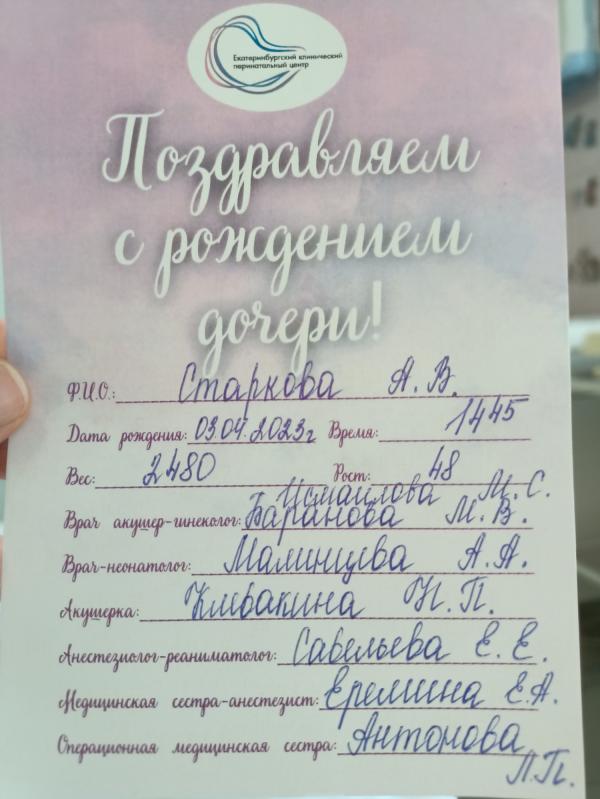 Екатеринбургский клинический
перинатальный центр
Поздравляем
с рождением
дочери!
Ф.И.О.: Старкова А. В.
Дата рождения: 03.04.2023г Время: 1445
Вес: 2480 Рост: 48
Исмаилова М. С.
Врач акушер-гинеколог: Баранова М. В.
Врач-неонатолог: Малинцева А. А.
Акушерка: Н. П.
Анестезиолог-реаниматолог: Савельева Е. Е.
Медицинская сестра-анестезист: Еремина Е.А.
Операционная медицинская сестра: Антонова
Л.П.